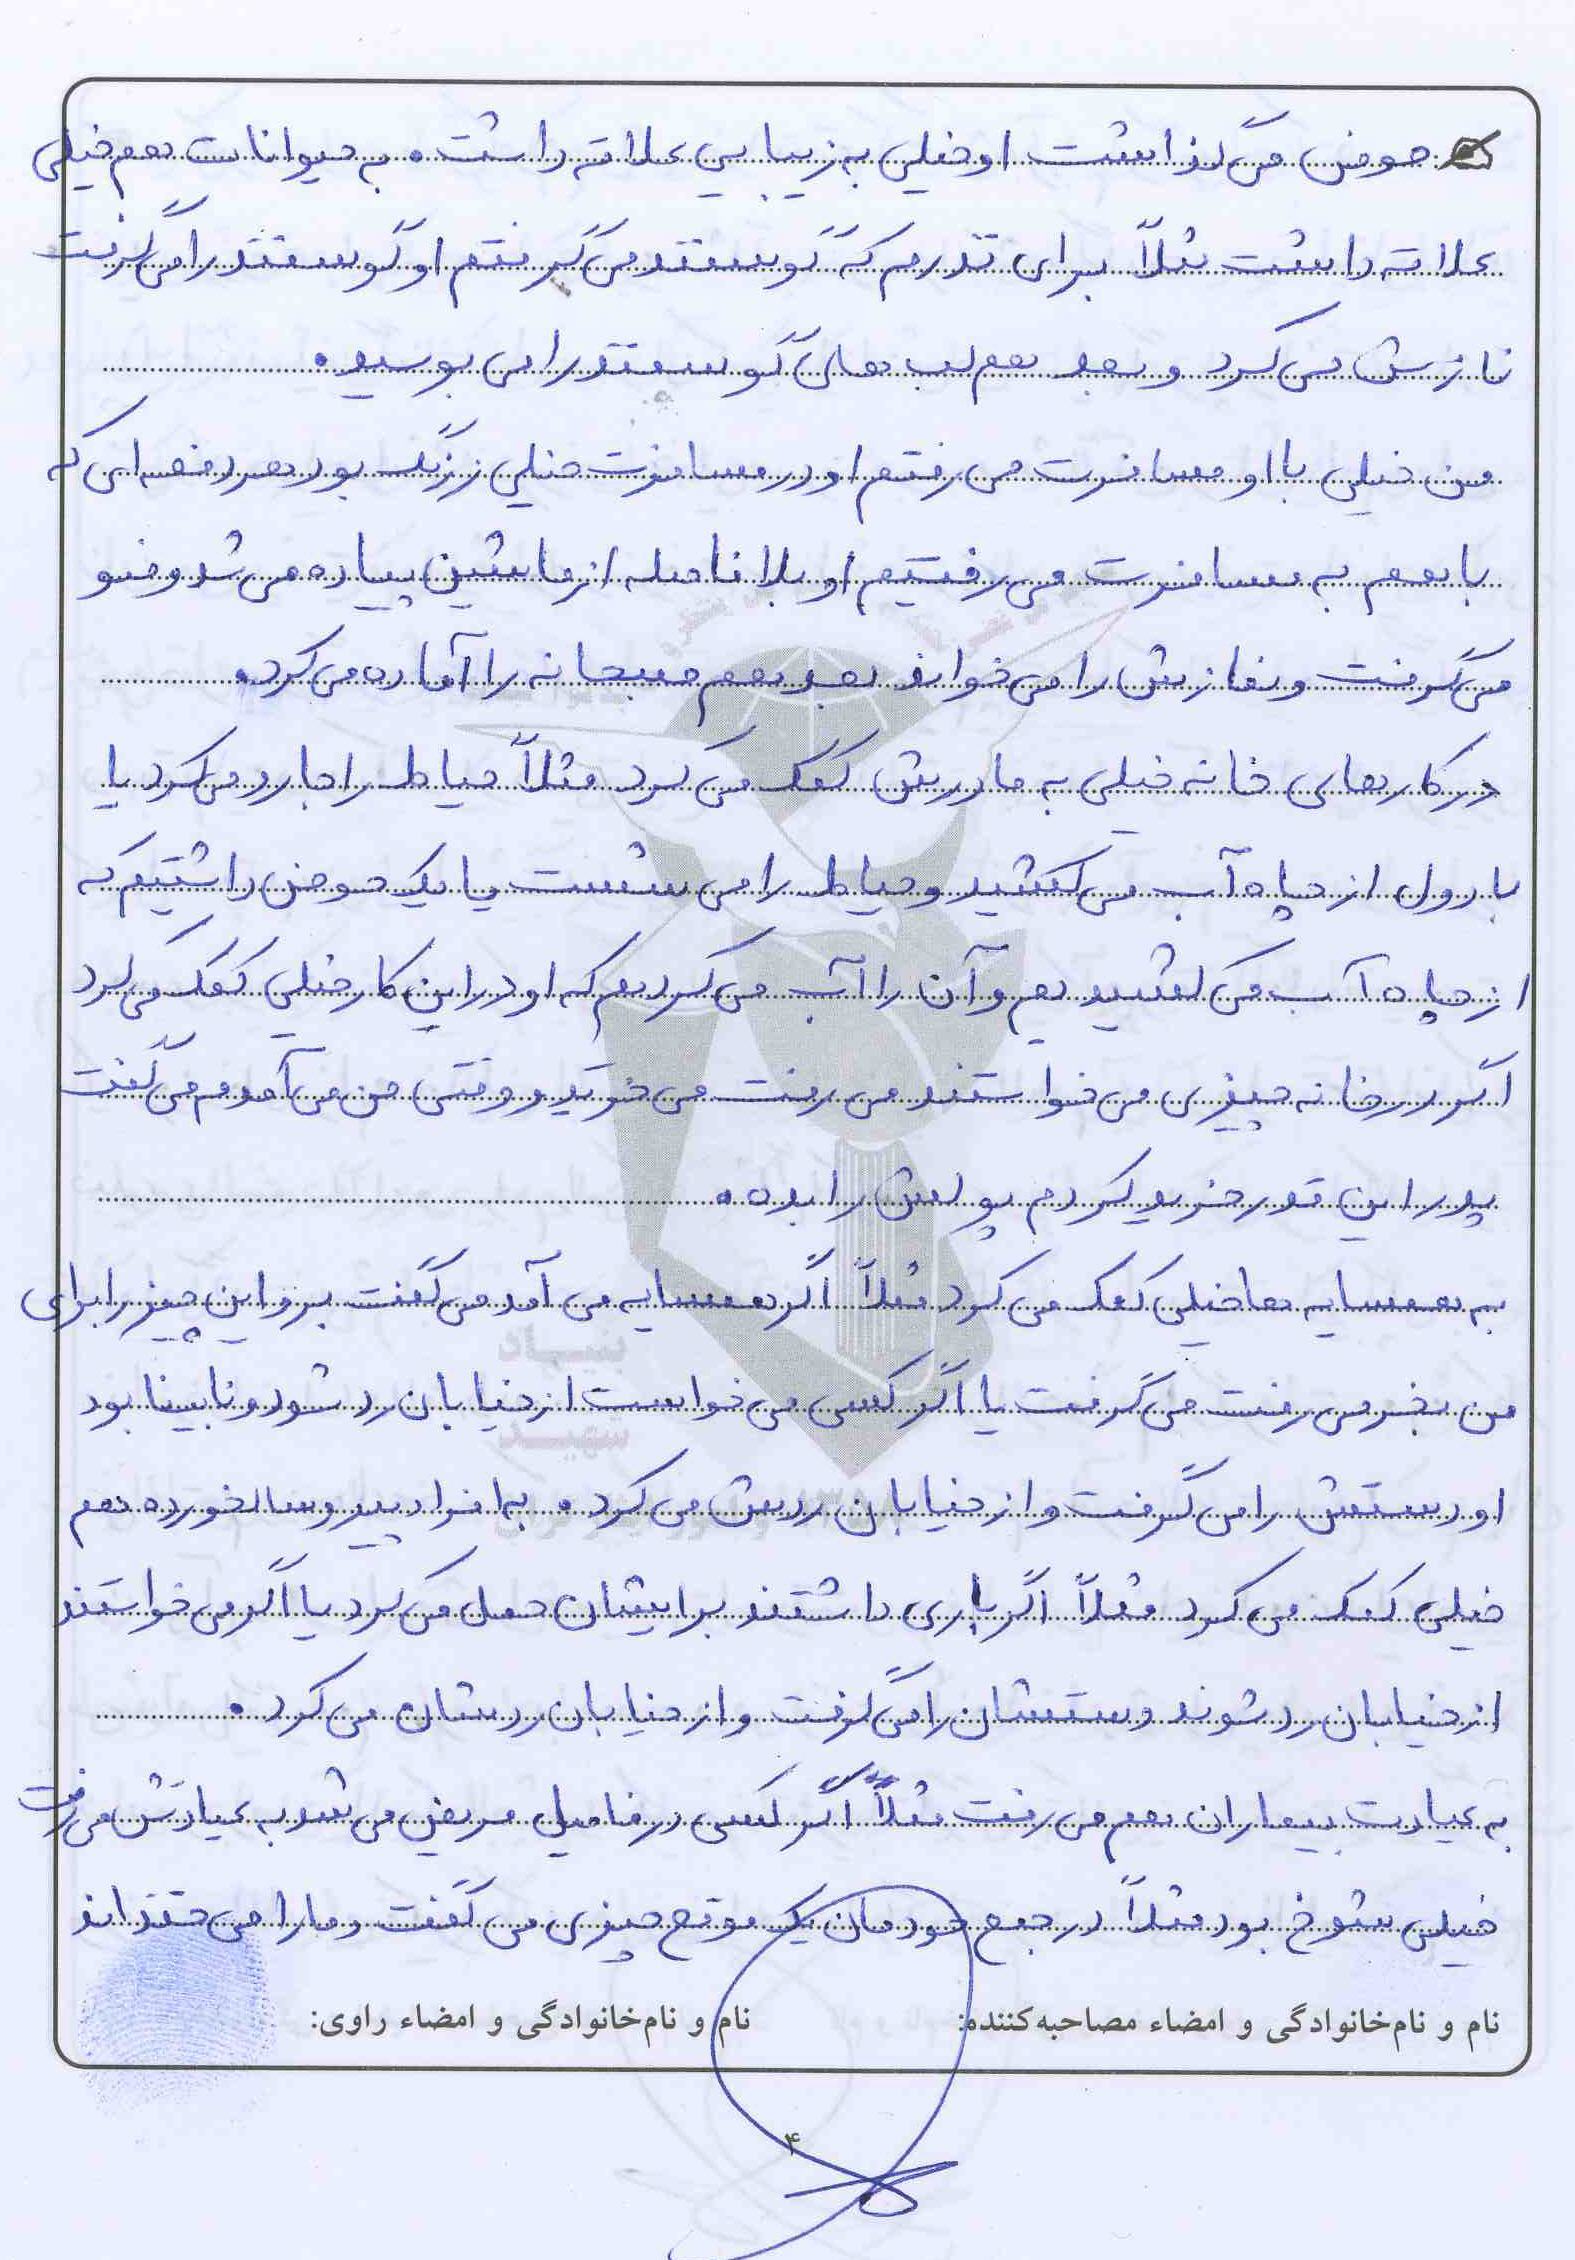 حوض می گذاشت او خیلی به زیبایی علاقه داشت. به حیوانات هم خیلی
علاقه داشت مثلاً برای نذرم که گوسفند می گرفتم او گوسفند را می گرفت
نازش می کرد و بعد هم لب های گوسفند را می بوسید.
من خیلی با او مسافرت می رفتم او در مسافرت خیلی زرنگ بود هر دفعه ای که
با هم به مسافرت می رفتیم او بلا فاصله از ماشین پیاده می شد وضو
می گرفت و نمازش را می خواند بعد هم صبحانه را آماده می کرد.
در کارهای خانه خیلی به مادرش کمک می کرد مثلاً حیاط را جارو می کرد یا
با دول از چاه آب می کشید و حیاط را می شست یا یک حوض داشتیم که
از چاه آب می کشیدیم و آن را آب می کردیم که او در این کار خیلی کمک می کرد
اگر در خانه چیزی می خواستند می رفت می خرید و وقتی من می آمدم می گفت
پدر این قدر خرید کردم پولش را بده.
به همسایه ها خیلی کمک می کرد مثلاً اگر همسایه می آمد می گفت برو این چیز را برای
من بخر می رفت می گرفت یا اگر کسی می خواست از خیابان رد شود و نابینا بود
او دستش را می گرفت و از خیابان ردش می کرد. به افراد پیر و سالخورده هم
خیلی کمک می کرد مثلاً اگر باری داشتند برایشان حمل می کرد یا اگر می خواستند
از خیابان رد شوند دستشان را می گرفت و از خیابان ردشان می کرد.
به عیادت بیماران هم می رفت مثلاً اگر کسی در فامیل مریض می شد به عیادتش می رفت
خیلی شوخ بود مثلاً در جمع خودمان یک موقع چیزی می گفت و ما را می خنداند
نام و نام‌خانوادگی و امضاء مصاحبه‌کننده: نام و نام‌خانوادگی و امضاء راوی:
۴